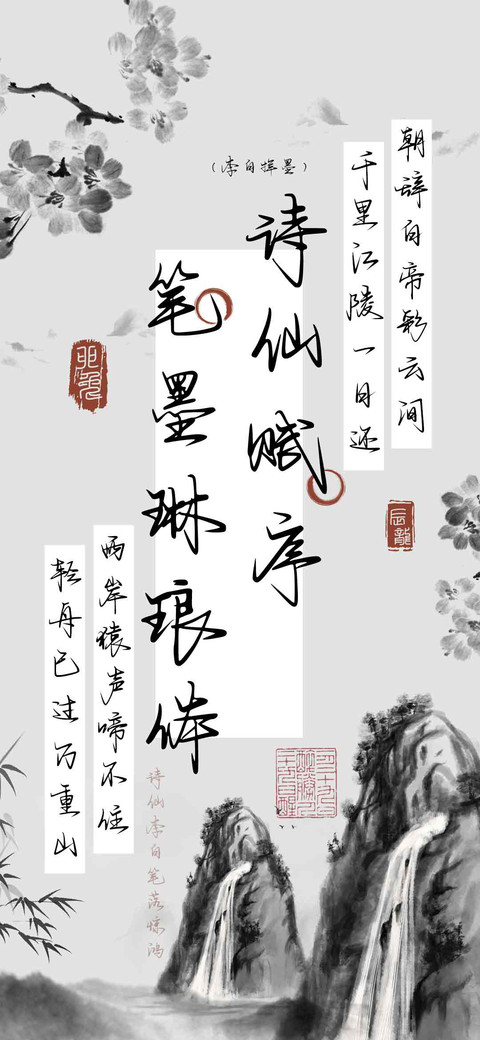 朝辞白帝彩云间
千里江陵一日还
(李白挥墨)
诗仙赋序
笔墨琳琅
卯兔
辰龍
两岸猿声啼不住
轻舟已过万重山
诗仙李白笔落惊鸿